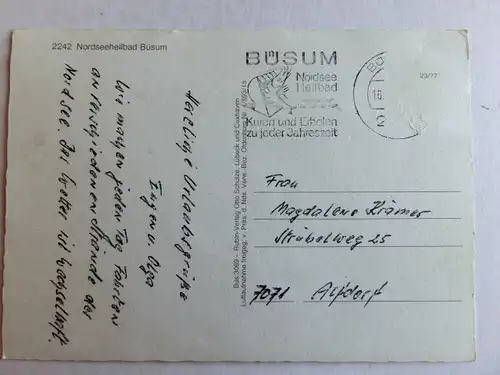 2242 Nordseeheilbad Büsum
Herzliche Urlaubsgrüße
Eugen u. Olga
Wir machen jeden Tag Fahrten
an verschiedenen Strände der
Nordsee. Das Wetter ist wechselhaft.
Büs 3069 - Rubin-Verlag Otto Schulze, Lübeck und Cuxhaven
Luftaufnahme freigeg. v. Präs. d. Nds. Verw.-Bez. Oldenburg Nr.
BÜSUM
Nordsee
Heilbad
Kuren und Erholen
zu jeder Jahreszeit
BÜ
2
23/77
Frau
Magdalene Krämer
Strübelweg 25
7071 Alfdorf